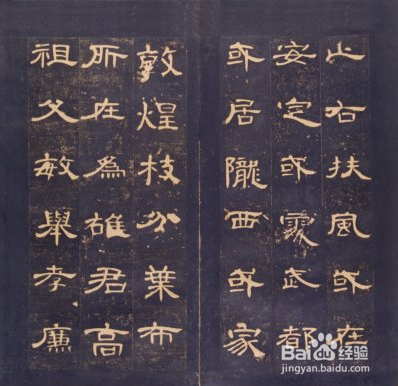 止右扶風或在
安定或處武都
或居隴西或家
敦煌枝分葉布
所在為雄君高
祖父敏舉孝廉
Baidu 经验
jingyan.baidu.com